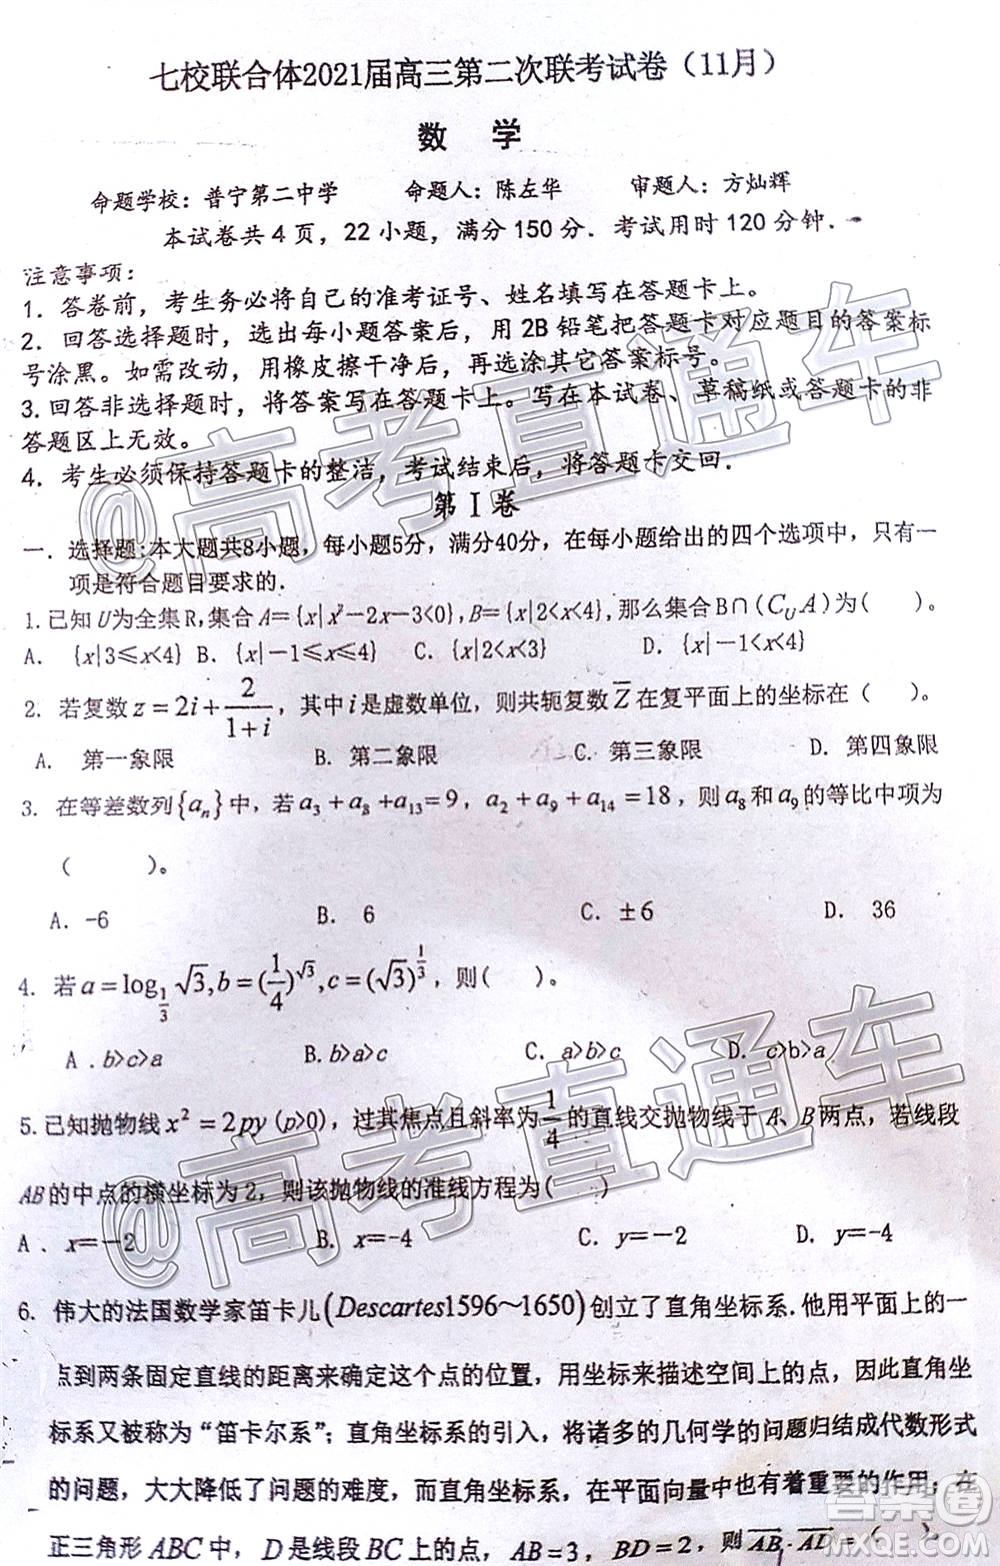 七校联合体2021届高三第二次联考试卷（11月）
数 学
命题学校：普宁第二中学 命题人：陈左华 审题人：方灿辉
本试卷共4页，22小题，满分150分．考试用时120分钟．
注意事项：
1．答卷前，考生务必将自己的准考证号、姓名填写在答题卡上。
2．回答选择题时，选出每小题答案后，用2B铅笔把答题卡对应题目的答案标
号涂黑。如需改动，用橡皮擦干净后，再选涂其它答案标号。
3.回答非选择题时，将答案写在答题卡上。写在本试卷、草稿纸或答题卡的非
答题区上无效。
4．考生必须保持答题卡的整洁，考试结束后，将答题卡交回．
第 I 卷
一．选择题:本大题共8小题，每小题5分，满分40分，在每小题给出的四个选项中，只有一
项是符合题目要求的．
1.已知U为全集R,集合A={x|x²-2x-3<0},B={x|2<x<4},那么集合B∩(C_U A)为( )。
A． {x|3≤x<4} B．{x|-1≤x≤4} C．{x|2<x<3} D．{x|-1<x<4}
2．若复数z=2i+2/(1+i)，其中i是虚数单位，则共轭复数Z̅在复平面上的坐标在（ ）。
A． 第一象限 B．第二象限 C．第三象限 D．第四象限
3．在等差数列{aₙ}中，若a₃+a₈+a₁₃=9，a₂+a₉+a₁₄=18，则a₈和a₉的等比中项为
（ ）。
A．-6 B． 6 C．±6 D． 36
4．若a=log_{1/3}√3,b=(1/4)^{√3},c=(√3)^{1/3}，则( )。
A .b>c>a B.b>a>c C．a>b>c D．c>b>a
5.已知抛物线x²=2py(p>0)，过其焦点且斜率为1/4的直线交抛物线于A、B两点，若线段
AB的中点的横坐标为2，则该抛物线的准线方程为( )
A ．x=-2 B．x=-4 C．y=-2 D．y=-4
6．伟大的法国数学家笛卡儿(Descartes1596～1650)创立了直角坐标系.他用平面上的一
点到两条固定直线的距离来确定这个点的位置，用坐标来描述空间上的点，因此直角坐
标系又被称为“笛卡尔系”；直角坐标系的引入，将诸多的几何学的问题归结成代数形式
的问题，大大降低了问题的难度，而直角坐标系，在平面向量中也有着重要的作用；在
正三角形ABC中，D是线段BC上的点，AB=3，BD=2，则AB·AD=（ ）。
@高考直通车
@高考直通车
答案圈
MXQE.COM